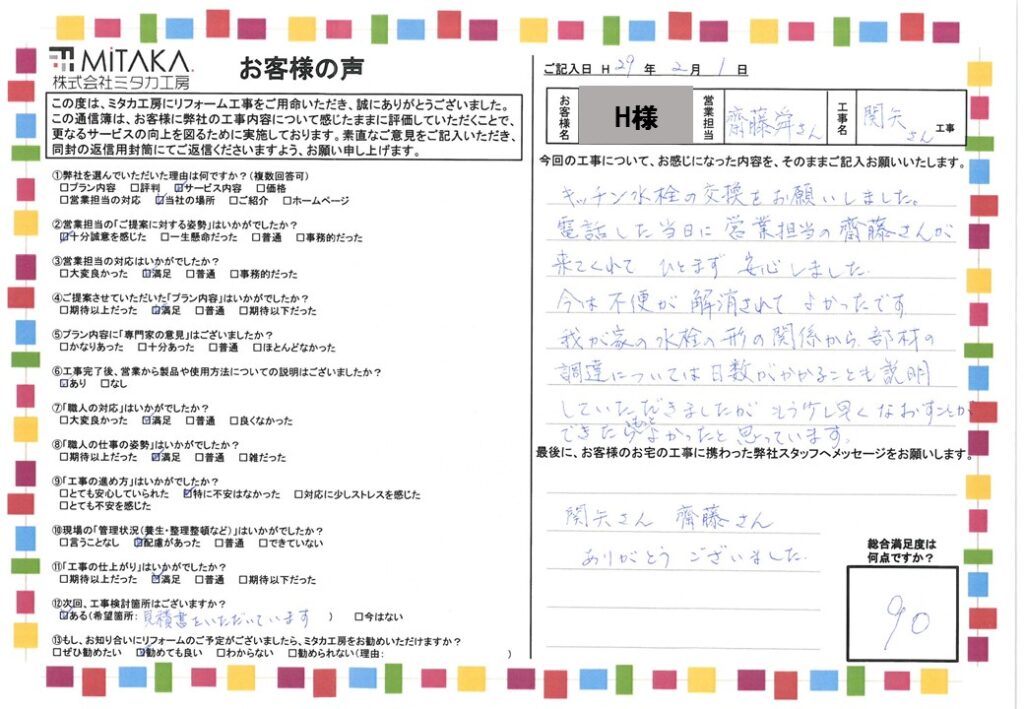 MiTAKA.
株式会社ミタカ工房
お客様の声
この度は、ミタカ工房にリフォーム工事をご用命いただき、誠にありがとうございました。
この通信簿は、お客様に弊社の工事内容について感じたままに評価していただくことで、
更なるサービスの向上を図るために実施しております。素直なご意見をご記入いただき、
同封の返信用封筒にてご返信くださいますよう、お願い申し上げます。
①弊社を選んでいただいた理由は何ですか？(複数回答可)
□プラン内容 □評判 ☑サービス内容 □価格
□営業担当の対応 ☑当社の場所 □ご紹介 □ホームページ
②営業担当の「ご提案に対する姿勢」はいかがでしたか？
☑十分誠意を感じた □一生懸命だった □普通 □事務的だった
③営業担当の対応はいかがでしたか？
□大変良かった ☑満足 □普通 □事務的だった
④ご提案させていただいた「プラン内容」はいかがでしたか？
□期待以上だった ☑満足 □普通 □期待以下だった
⑤プラン内容に「専門家の意見」はございましたか？
□かなりあった □十分あった □普通 □ほとんどなかった
⑥工事完了後、営業から製品や使用方法についての説明はございましたか？
☑あり □なし
⑦「職人の対応」はいかがでしたか？
□大変良かった ☑満足 □普通 □良くなかった
⑧「職人の仕事の姿勢」はいかがでしたか？
□期待以上だった ☑満足 □普通 □雑だった
⑨「工事の進め方」はいかがでしたか？
□とても安心していられた ☑特に不安はなかった □対応に少しストレスを感じた
□とても不安を感じた
⑩現場の「管理状況(養生・整理整頓など)」はいかがでしたか？
□言うことなし ☑配慮があった □普通 □できていない
⑪「工事の仕上がり」はいかがでしたか？
□期待以上だった ☑満足 □普通 □期待以下だった
⑫次回、工事検討箇所はございますか？
☑ある(希望箇所: 見積書をいただいています ) □今はない
⑬もし、お知り合いにリフォームのご予定がございましたら、ミタカ工房をお勧めいただけますか？
□ぜひ勧めたい ☑勧めても良い □わからない □勧められない(理由: )
ご記入日 H 29 年 2 月 1 日
お客様名 H様 営業担当 齋藤舜さん 工事名 関矢さん 工事
今回の工事について、お感じになった内容を、そのままご記入お願いいたします。
キッチン水栓の交換をお願いしました。
電話した当日に営業担当の齋藤さんが
来てくれて ひとまず 安心しました.
今は不便が解消されて よかったです
我が家の水栓の形の関係から、部材の
調達については日数がかかることも説明
していただきましたが もう少し早くなおすことが
できたらもっとよかったと思っています。
最後に、お客様のお宅の工事に携わった弊社スタッフへメッセージをお願いします。
関矢さん 齋藤さん
ありがとう ございました.
総合満足度は
何点ですか？
90